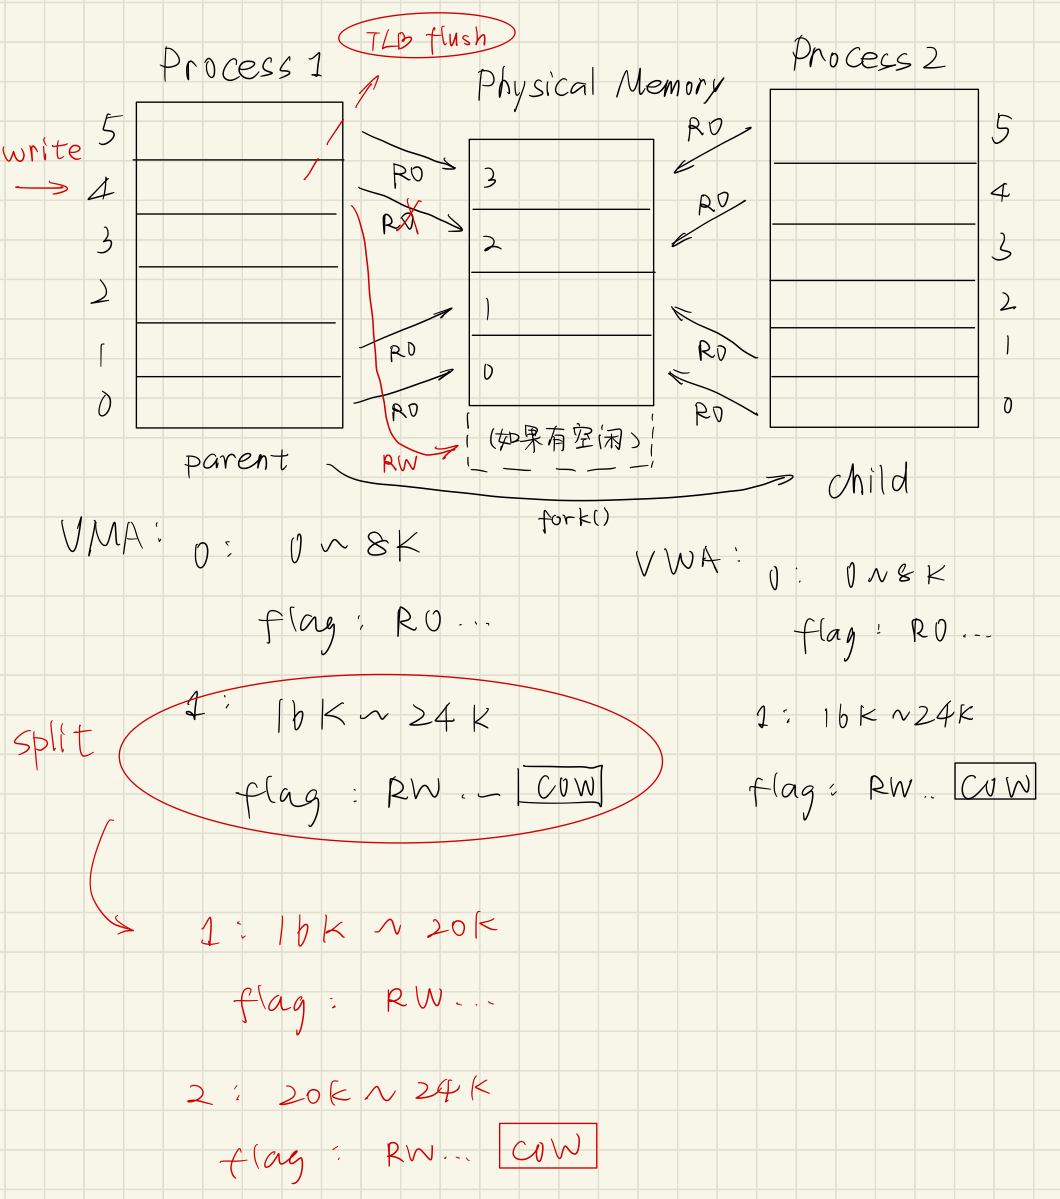 TLB flush
Process 1
Physical Memory
Process 2
5
4
3
2
1
0
write
RO
RO
RO
RO
RW
3
2
1
0
(如果有空闲)
RO
RO
RO
RO
5
4
3
2
1
0
parent
fork()
child
VMA:
0: 0 ~ 8K
flag: RO ...
1: 16K ~ 24K
flag: RW ... COW
VWA:
0: 0 ~ 8K
flag: RO ...
1: 16K ~ 24K
flag: RW .. COW
split
1: 16K ~ 20K
flag: RW ...
2: 20K ~ 24K
flag: RW... COW